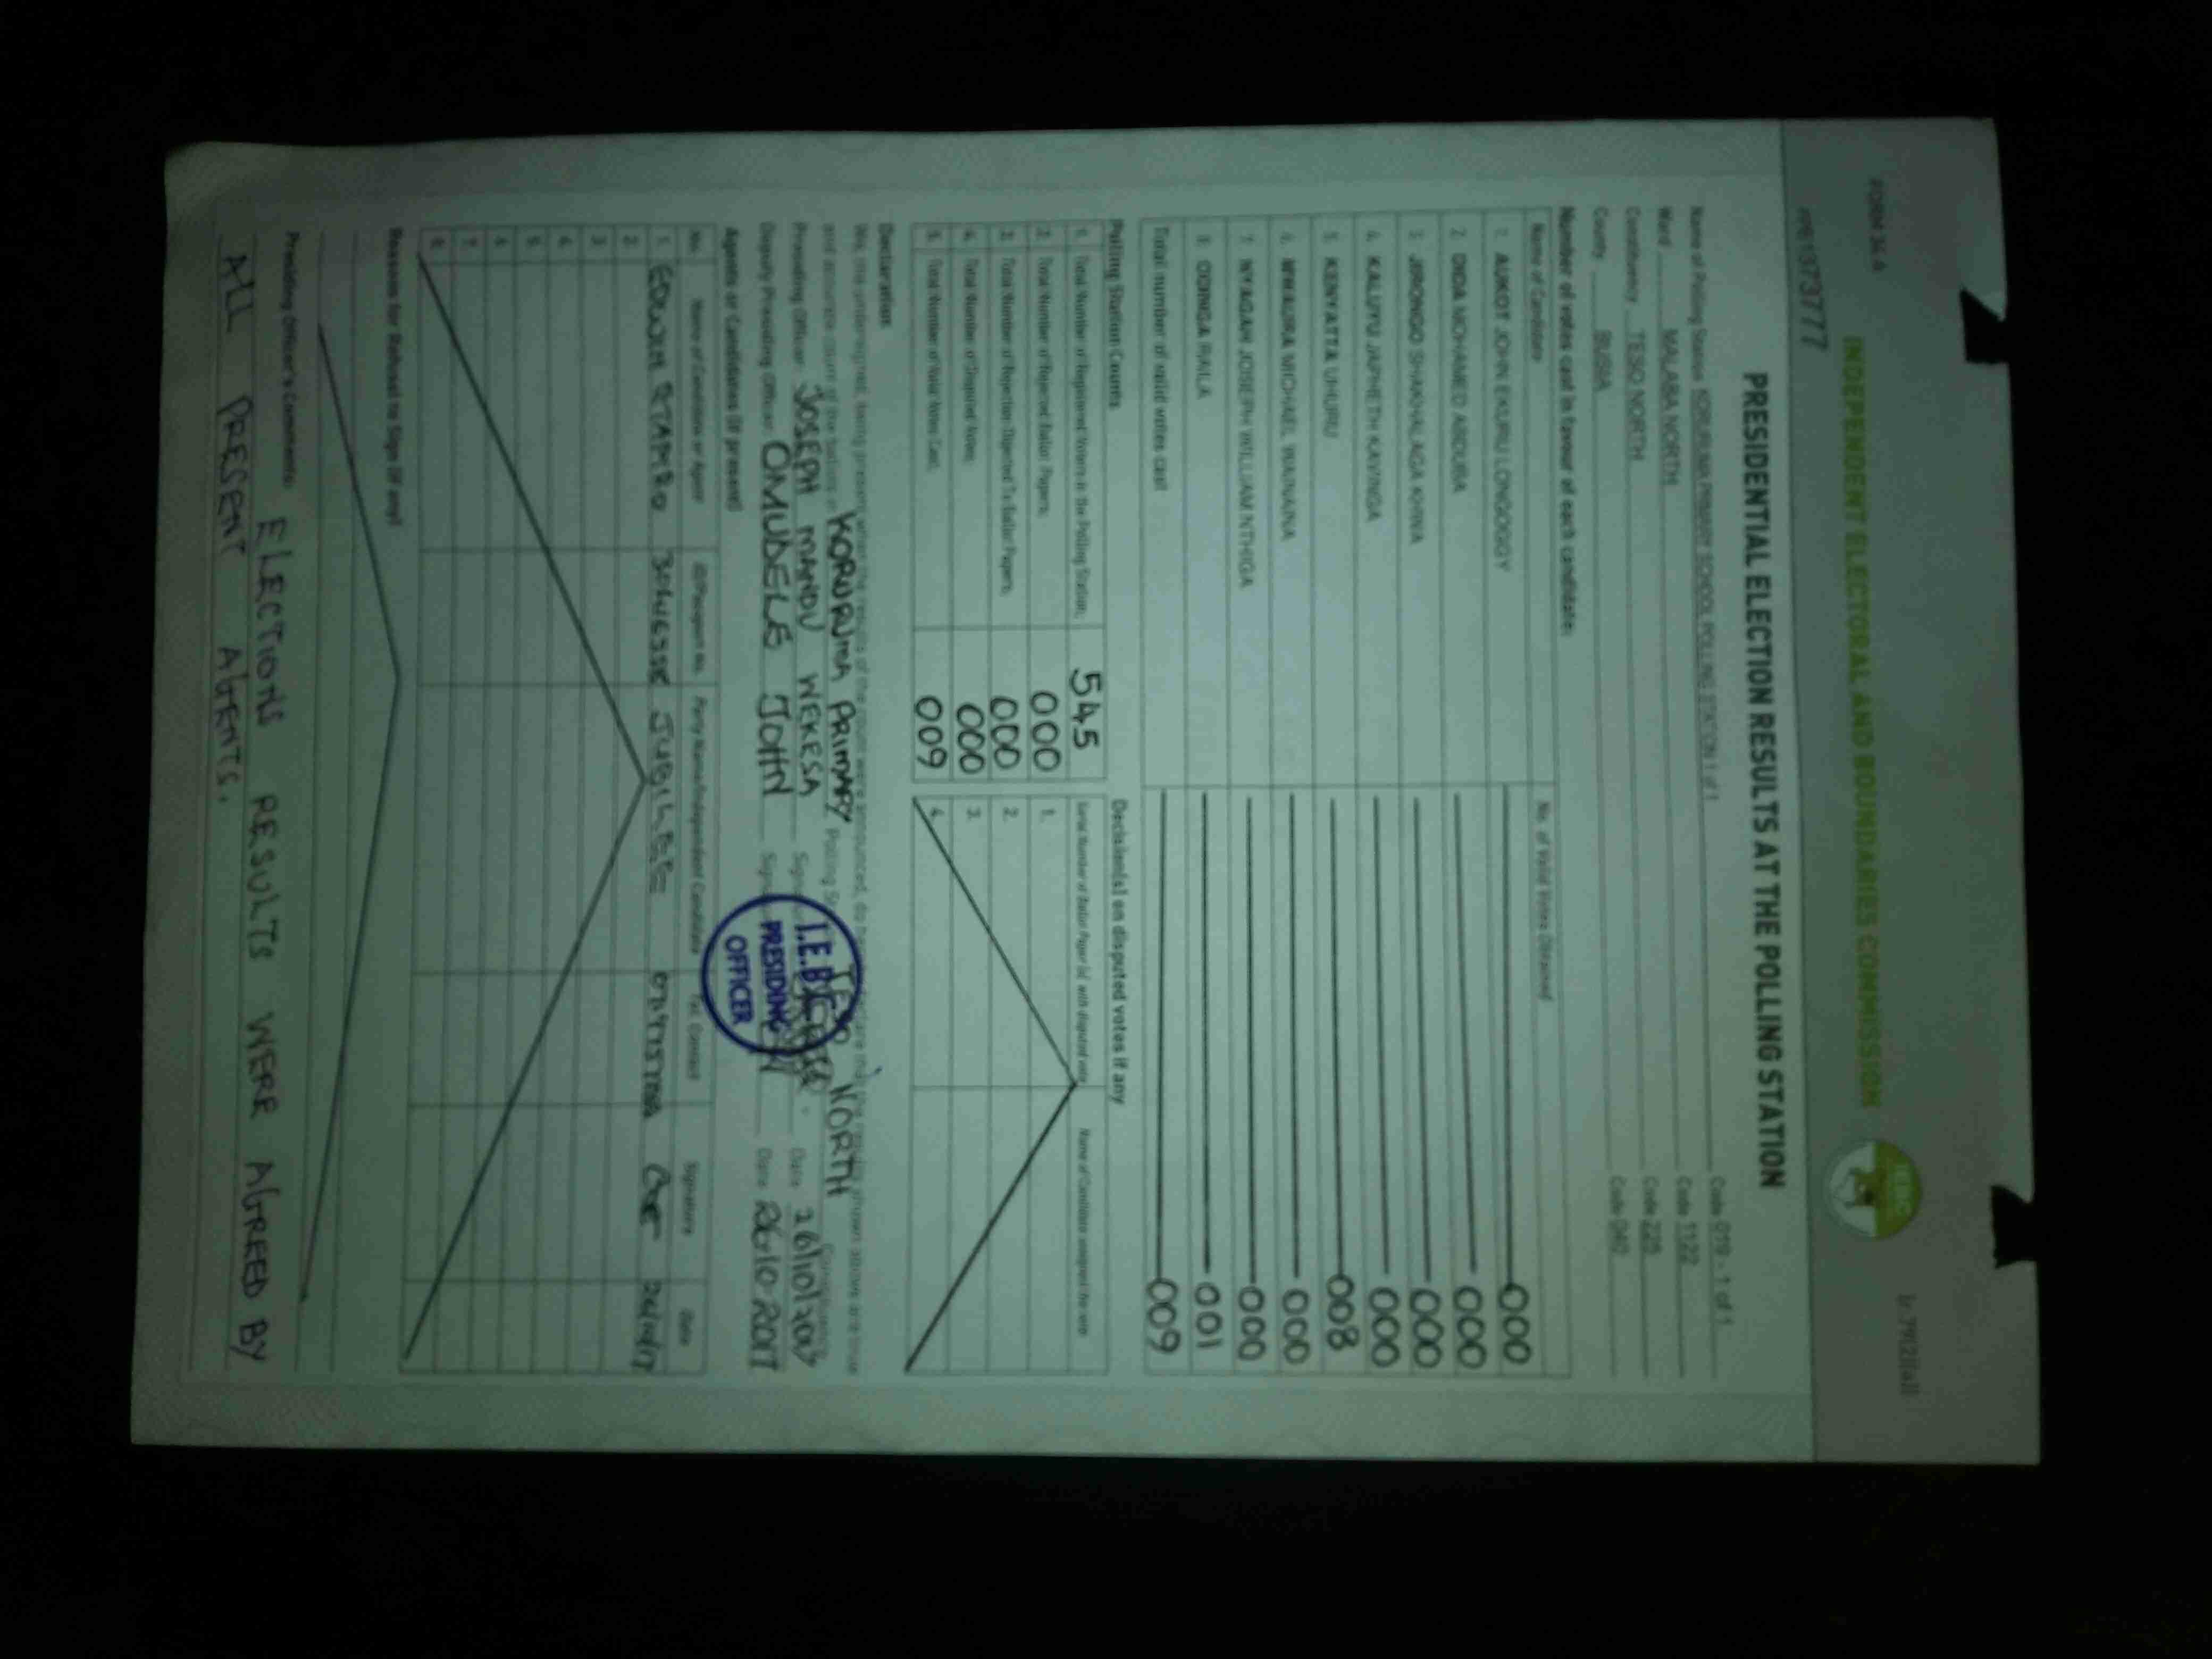 FORM 34 A
INDEPENDENT ELECTORAL AND BOUNDARIES COMMISSION
IEBC
PRESIDENTIAL ELECTION RESULTS AT THE POLLING STATION
Name of Polling Station KORURUMA PRIMARY SCHOOL POLLING STATION 1 of 1 Code 019 - 1 of 1
Ward MALABA NORTH Code 1122
Constituency TESO NORTH Code 225
County BUSIA Code 040
Number of votes cast in favour of each candidate:
Name of Candidate No. of Valid Votes Obtained
1. AUKOT JOHN EKURU LONGOGGY 000
2. DIDA MOHAMED ABDUBA 000
3. JIRONGO SHAKHALAGA KHWA 000
4. KALUYU JAPHETH KAVINGA 000
5. KENYATTA UHURU 008
6. MWAURA MICHAEL WAINAINA 000
7. NYAGAH JOSEPH WILLIAM NTHIGA 000
8. ODINGA RAILA 001
Total number of valid votes cast 009
Polling Station Counts
1. Total Number of Registered Voters in the Polling Station; 545
2. Total Number of Rejected Ballot Papers; 000
3. Total Number of Rejection Objected To Ballot Papers; 000
4. Total Number of Disputed Votes; 000
5. Total Number of Valid Votes Cast; 009
Decision(s) on disputed votes if any
Serial Number of Ballot Paper (s) with disputed vote Name of Candidate
1.
2.
3.
4.
Declaration
We, the undersigned, being present when the results of the count were announced, do
and accurate count of the ballots in KORURUMA PRIMARY Polling TESO NORTH Constituency
Presiding Officer JOSEPH MANDU WEKESA Date
Deputy Presiding Officer OMUDELE JOHN Date 26-10-2017
I.E.B.C
PRESIDING
OFFICER
Agents or Candidates (if present)
No. Name of Candidate or Agent ID/Passport No. Party Name/Independent Candidate Tel. Contact Signature Date
1. JUBILEE
2.
3.
4.
5.
6.
7.
8.
Reason for Refusal to Sign (if any)
Presiding Officer's Comments: ELECTIONS RESULTS WERE AGREED BY
ALL PRESENT AGENTS.